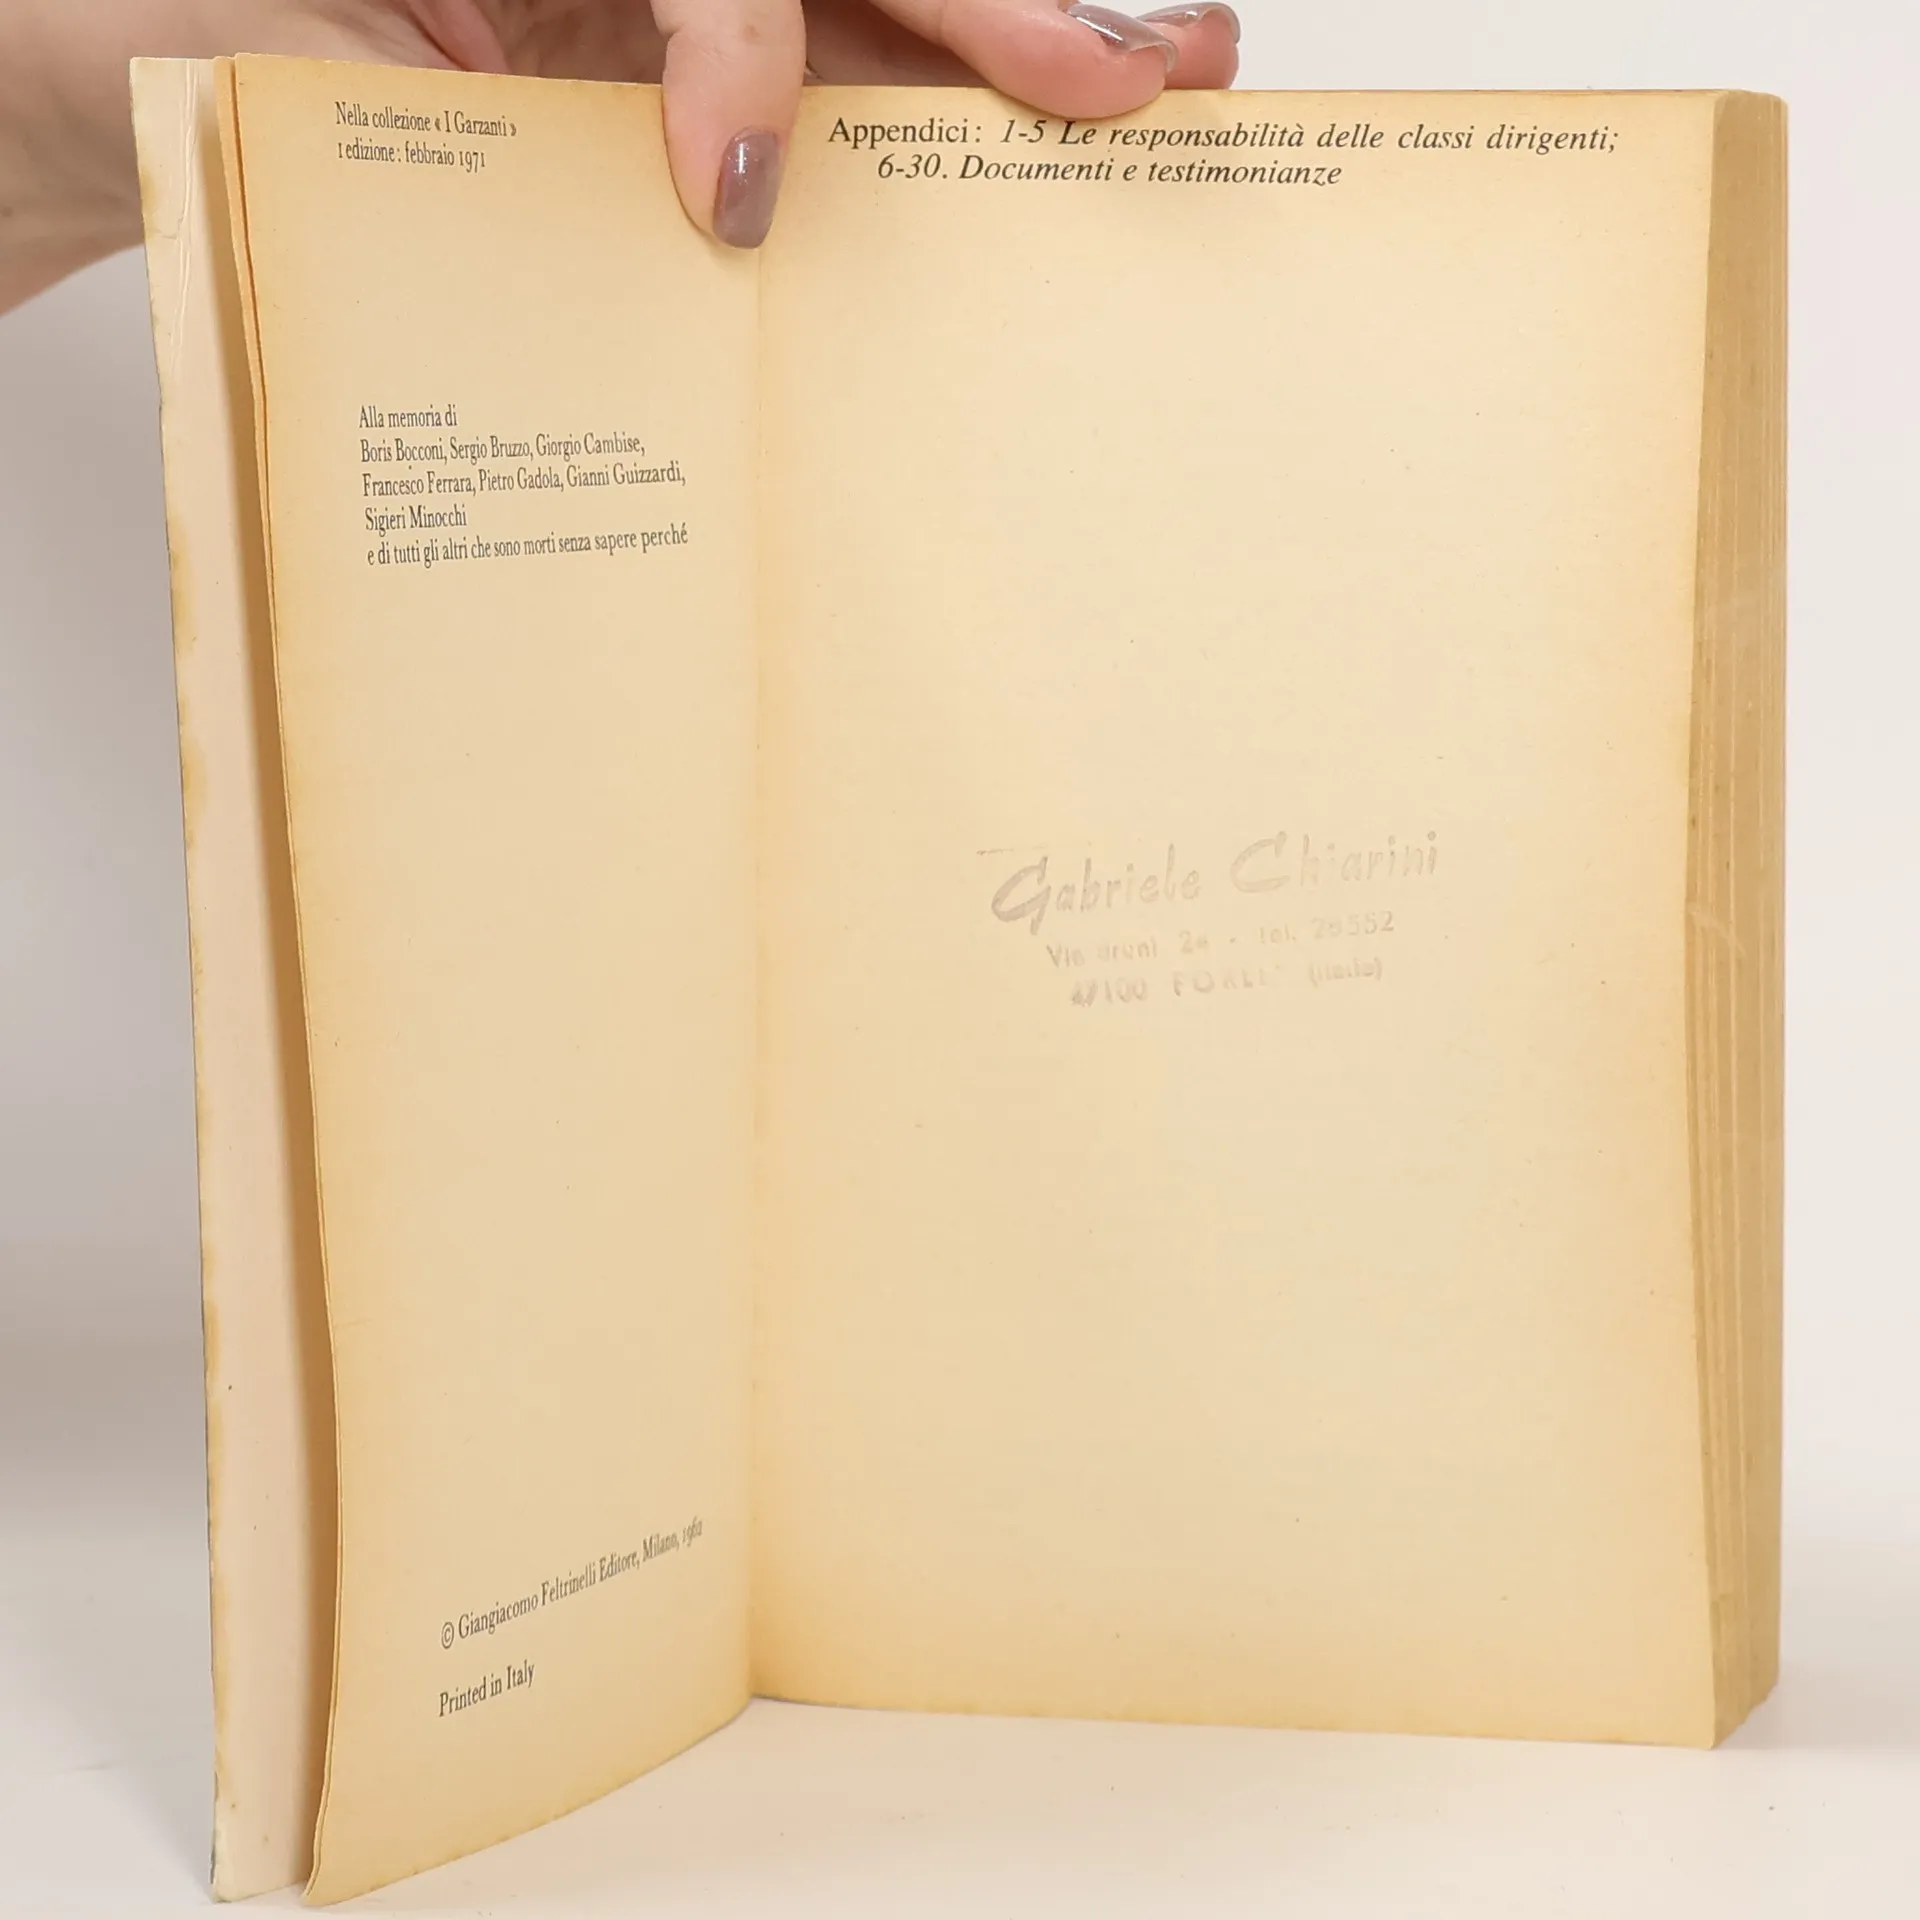 Nella collezione « I Garzanti »
1 edizione: febbraio 1971
Alla memoria di
Boris Bocconi, Sergio Bruzzo, Giorgio Cambise,
Francesco Ferrara, Pietro Gadola, Gianni Guizzardi,
Sigieri Minocchi
e di tutti gli altri che sono morti senza sapere perché
© Giangiacomo Feltrinelli Editore, Milano, 1962
Printed in Italy
Appendici: 1-5 Le responsabilità delle classi dirigenti;
6-30. Documenti e testimonianze
Gabriele Chiarini
Via - tel.
47100 FORLI' (Italia)